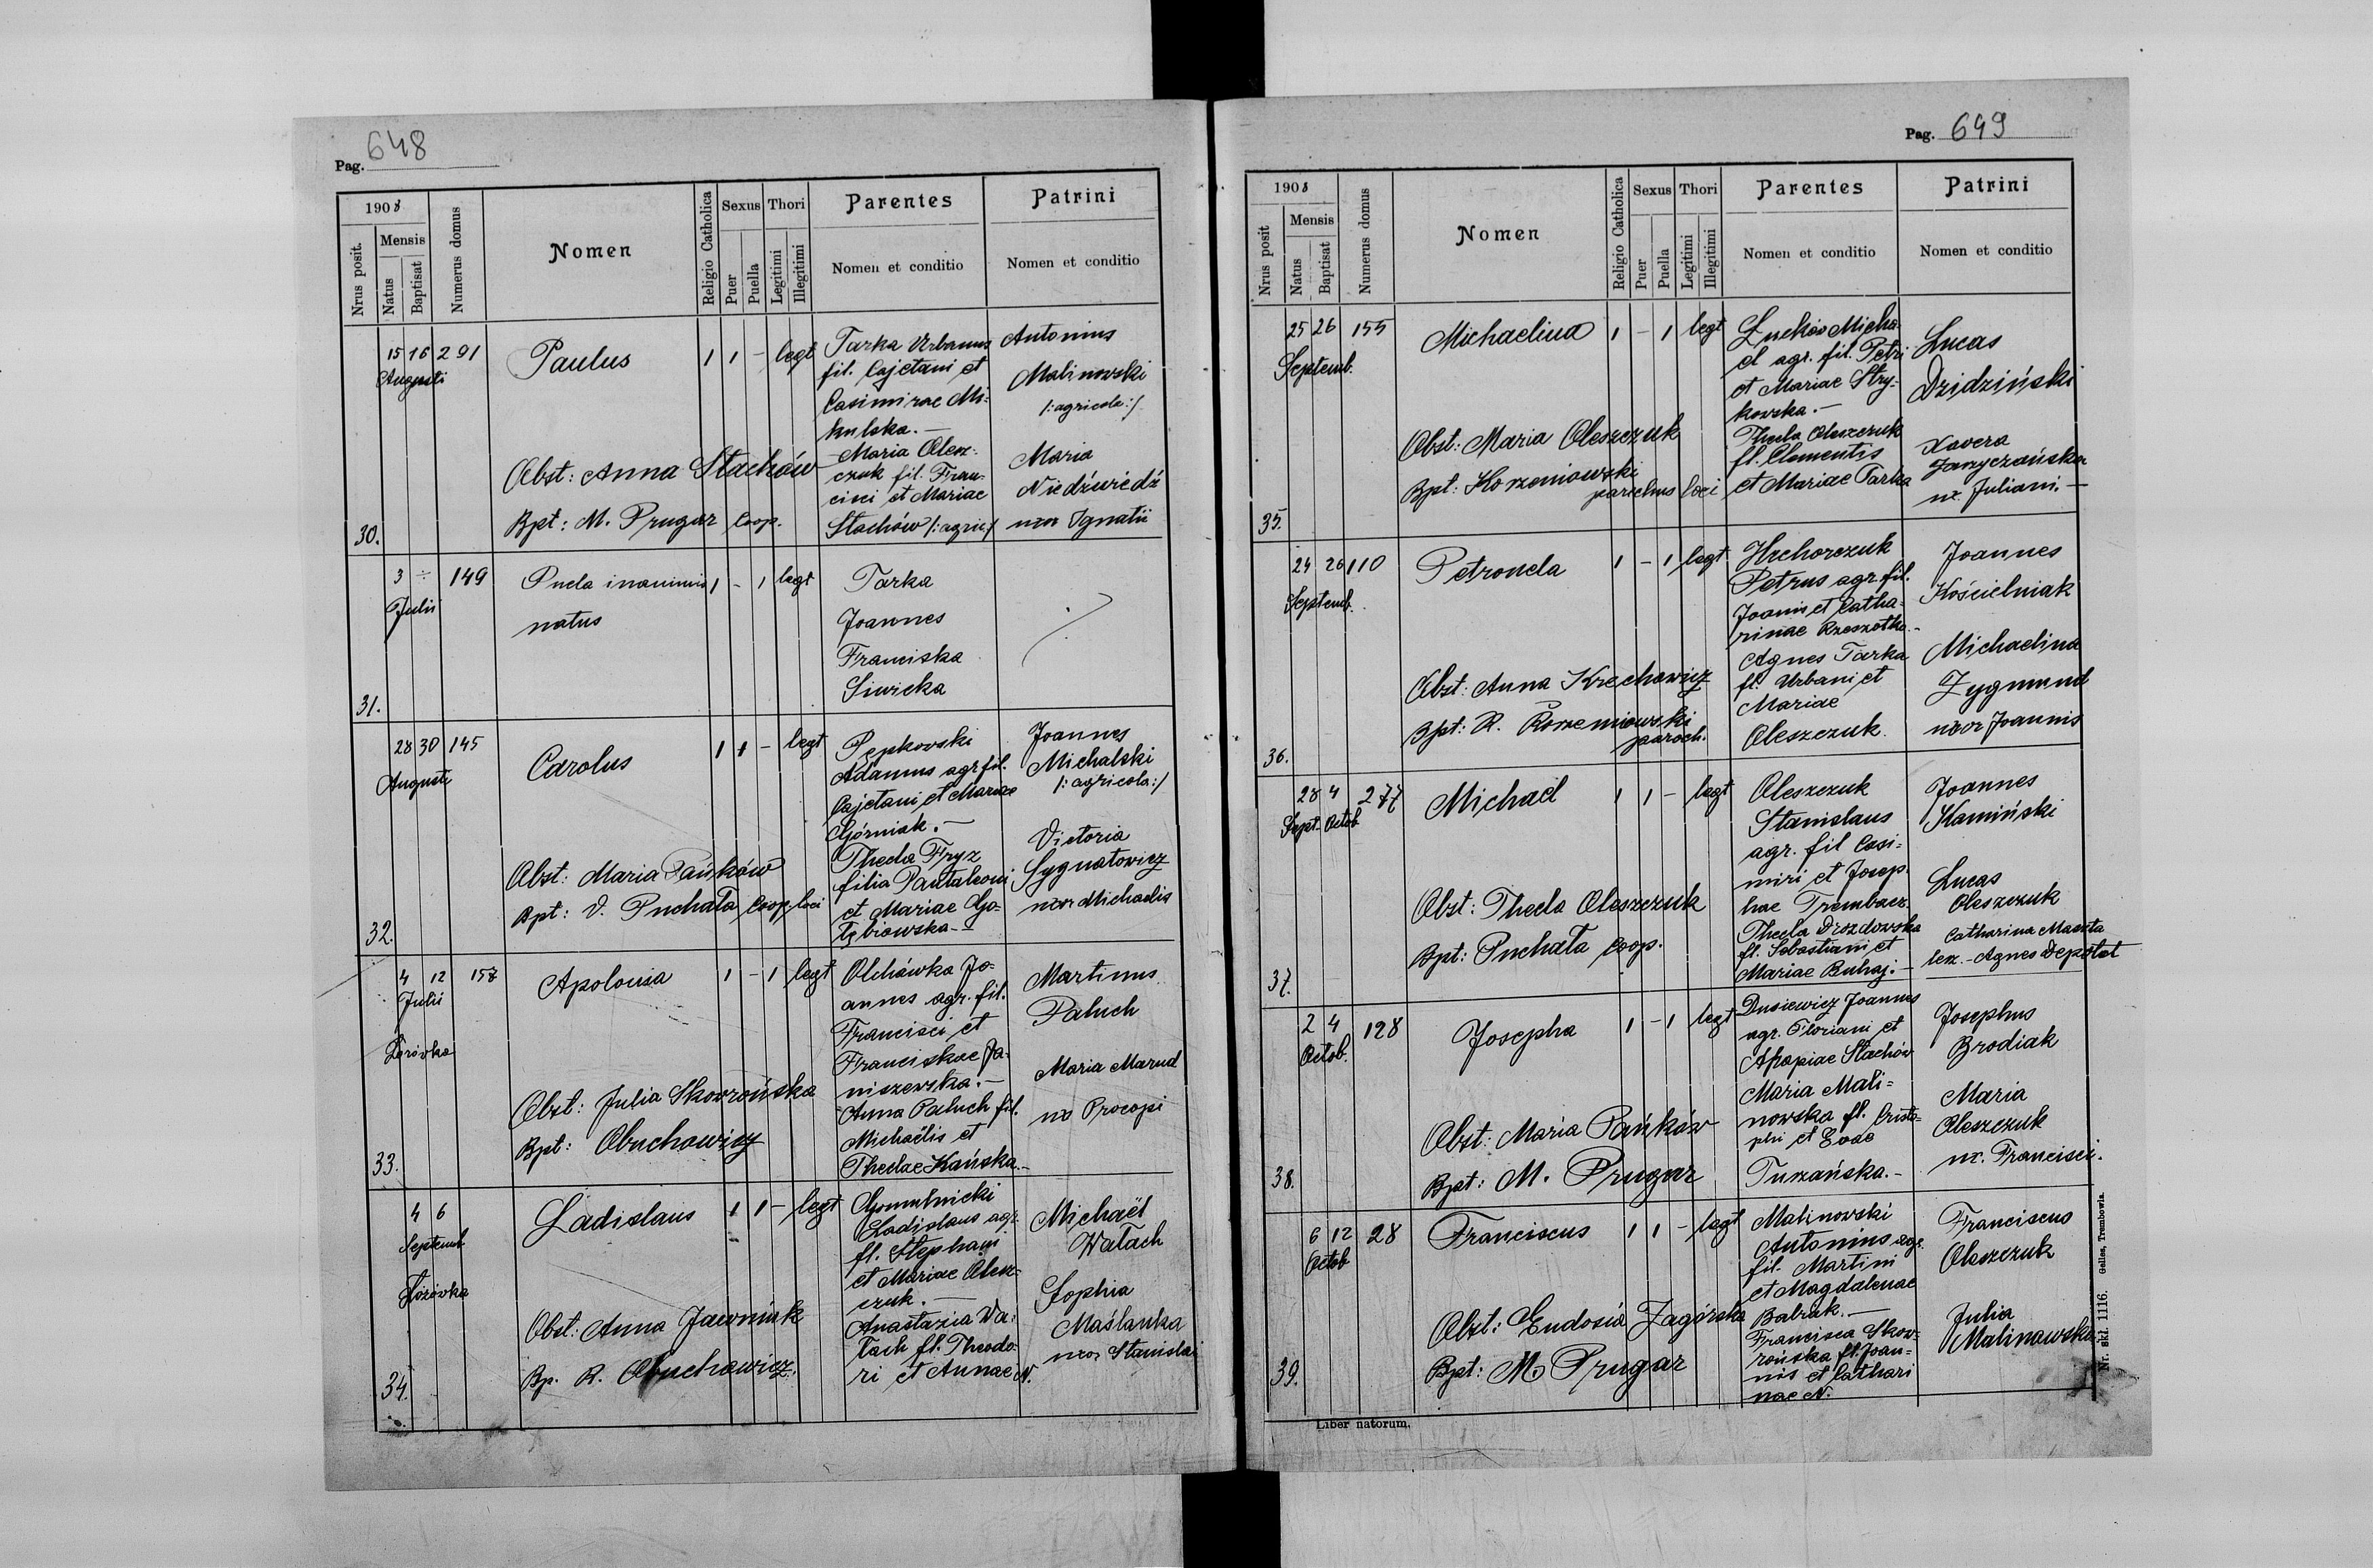 Pag. 648
1908
Nrus posit.
Mensis
Natus
Baptisat
Numerus domus
Nomen
Religio Catholica
Sexus
Puer
Puella
Thori
Legitimi
Illegitimi
Parentes
Nomen et conditio
Patrini
Nomen et conditio
30.
15 16 291
Augusti
Paulus
1 1 - legt
Tarka Urbanus
fil. Cajetani et
Casimirae Mi-
kulska.-
Maria Olesz-
czuk fil. Fran-
cisci et Mariae
Stachów /:agric:/
Antonius
Malinowski
/:agricola:/
Maria
Niedźwiedź
uxor Ignatii
Obst: Anna Stachów
Bpt: M. Prugar Coop.
31.
3 ÷ 149
Julii
Puela inanimis
natus
1 - 1 legt
Tarka
Joannes
Franciska
Siwicka
32.
28 30 145
Augusti
Carolus
1 1 - legt
Pępkowski
Adamus agr. fil.
Cajetani et Mariae
Górniak.-
Thecla Fryz
filia Pantaleoni
et Mariae Go-
łębiowska-
Joannes
Michalski
/:agricola:/
Victoria
Sygnatowicz
uxor Michaelis
Obst: Maria Pańków
Bpt: V. Puchała Coop. loci
33.
4 12 157
Julii
Łozówka
Apolonia
1 - 1 legt
Olchówka Jo-
annes agr. fil.
Francisci et
Franciskae Ja-
niszewska.-
Anna Paluch fil.
Michaëlis et
Theclae Kańska.-
Martinus
Paluch
Maria Marud
ux Procopi
Obst: Julia Skowrońska
Bpt: Obuchowicz
34.
4 6
Septemb
Łozówka
Ladislaus
1 1 - legt
Gomulnicki
Ladislaus agr.
fl. Stephani
et Mariae Olesz-
czuk.-
Anastazia Wa-
łach fl. Theodo-
ri et Annae N.
Michaël
Wałach
Sophia
Maślanka
uxor Stanislai
Obst: Anna Jawniuk
Bp. R. Obuchowicz.
Pag. 649
1908
Nrus posit
Mensis
Natus
Baptisat
Numerus domus
Nomen
Religio Catholica
Sexus
Puer
Puella
Thori
Legitimi
Illegitimi
Parentes
Nomen et conditio
Patrini
Nomen et conditio
35.
25 26 155
Septemb.
Michaelina
1 - 1 legt
Łuków Micha-
el agr. fil. Petri
et Mariae Stry-
kowska.-
Thecla Oleszczuk
fl. Clementis
et Mariae Tarka
Lucas
Dzidziński
Xavera
ux. Juliani.-
Obst: Maria Oleszczuk
Bpt: Korzeniowski
parochus loci
36.
24 26 110
Septemb.
Petronela
1 - 1 legt
Hrehorczuk
Petrus agr. fil.
Joanis et Catha-
rinae Rzeszotko.-
Agnes Tarka
fl. Urbani et
Mariae
Oleszczuk.
Joannes
Kościelniak
Michaelina
Zygmund
uxor Joannis
Obst: Anna Krechowicz
Bpt: R. Korzeniowski
paroch.
37.
28 4 277
Sept. Octob
Michael
1 1 - legt
Oleszczuk
Stanislaus
agr. fil Casi-
miri et Josep-
hae Trembacz.
Thecla Drozdowska
fl. Sebastiani et
Mariae Buhaj.-
Joannes
Kamiński
Lucas
Oleszczuk
Catharina
Agnes Depotat
Obst: Thecla Oleszczuk
Bpt: Puchała Coop.
38.
2 4 128
Octob.
Josepha
1 - 1 legt
Dusiewicz Joannes
agr. Floriani et
Agapiae Stachów
Maria Mali-
nowska fl. Cristo-
phi et Evae
Tuzańska.-
Josephus
Brodiak
Maria
Oleszczuk
ux. Francisci.
Obst: Maria Pańków
Bpt: M. Prugar
39.
6 12 28
Octob
Franciscus
1 1 - legt
Malinowski
Antonius agr.
fil. Martini
et Magdalenae
Babiak.-
Francisca Skow-
rońska fl. Joan-
nis et Cathari
nae N.
Franciscus
Oleszczuk
Julia
Malinowska
Obst: Eudosia Zagórska
Bpt: M. Prugar
Liber natorum.
Nr. skł. 1116. Gelles, Trembowla.